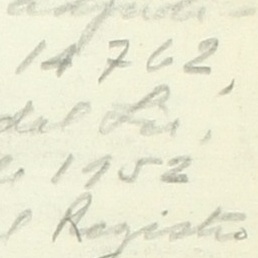 14762,
del Lu,
de 1952
l Registro